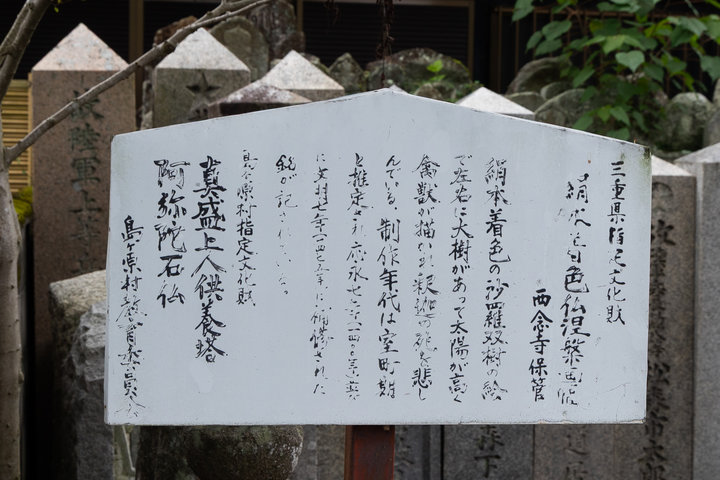 三重県指定文化財
絹本着色仏涅槃画像
西念寺保管
絹本着色の沙羅双樹の絵
で左右に大樹があって太陽が高く
禽獣が描かれ釈迦の死を悲し
んでいる。制作年代は室町期
と推定され応永七年(一四〇〇年)
に文明七年(一四七五年)に補修された
銘が記されている
島ヶ原村指定文化財
真盛上人供養塔
阿弥陀石仏
島ヶ原村教育委員会
故陸軍上等